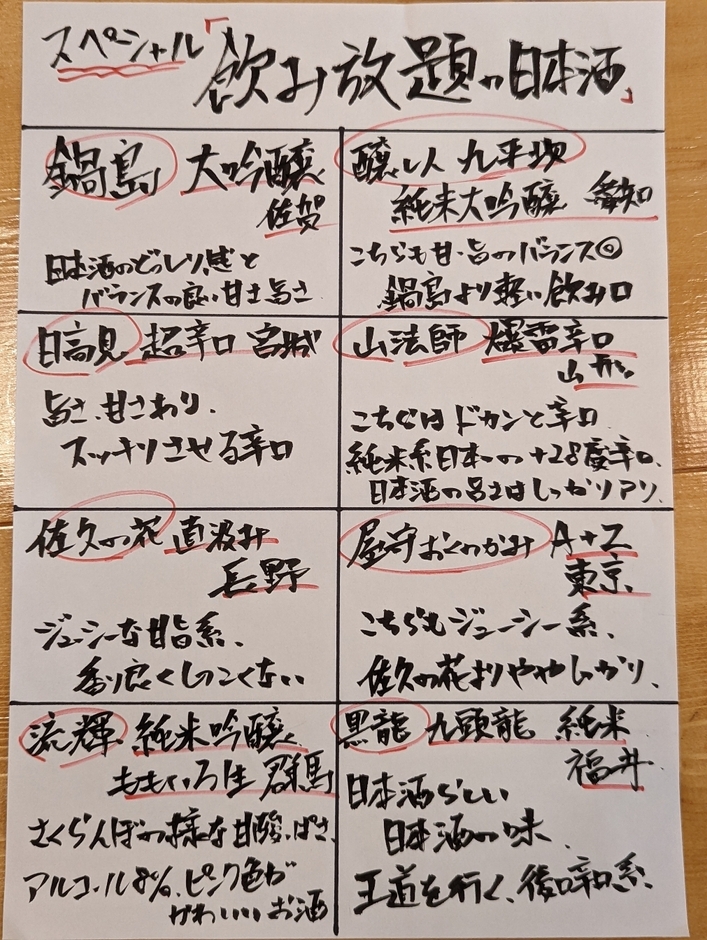 スペシャル「飲み放題の日本酒」
鍋島 大吟醸
佐賀
日本酒のどっしり感と
バランスの良い甘さ旨さ
醸し人 九平次
純米大吟醸 愛知
こちらも甘・旨のバランス◎
鍋島より軽い飲み口
日高見 超辛口 宮城
旨さ、甘さあり、
スッキリさせる辛口
山法師 爆雷辛口
山形
こちらはドカンと辛口
純米系日本一の+28度辛口、
日本酒の旨さはしっかりアリ、
佐久の花 直汲み
長野
ジューシーな甘旨系、
香り良くしつこくない
屋守おくのかみ
東京
こちらもジューシー系、
佐久の花よりややしっかり、
流輝 純米吟醸
ももいろ生 群馬
さくらんぼの様な甘酸っぱさ、
アルコール8%、ピンク色が
かわいいお酒
黒龍 九頭龍 純米
福井
日本酒らしい
日本酒の味、
王道を行く、後口辛口系、